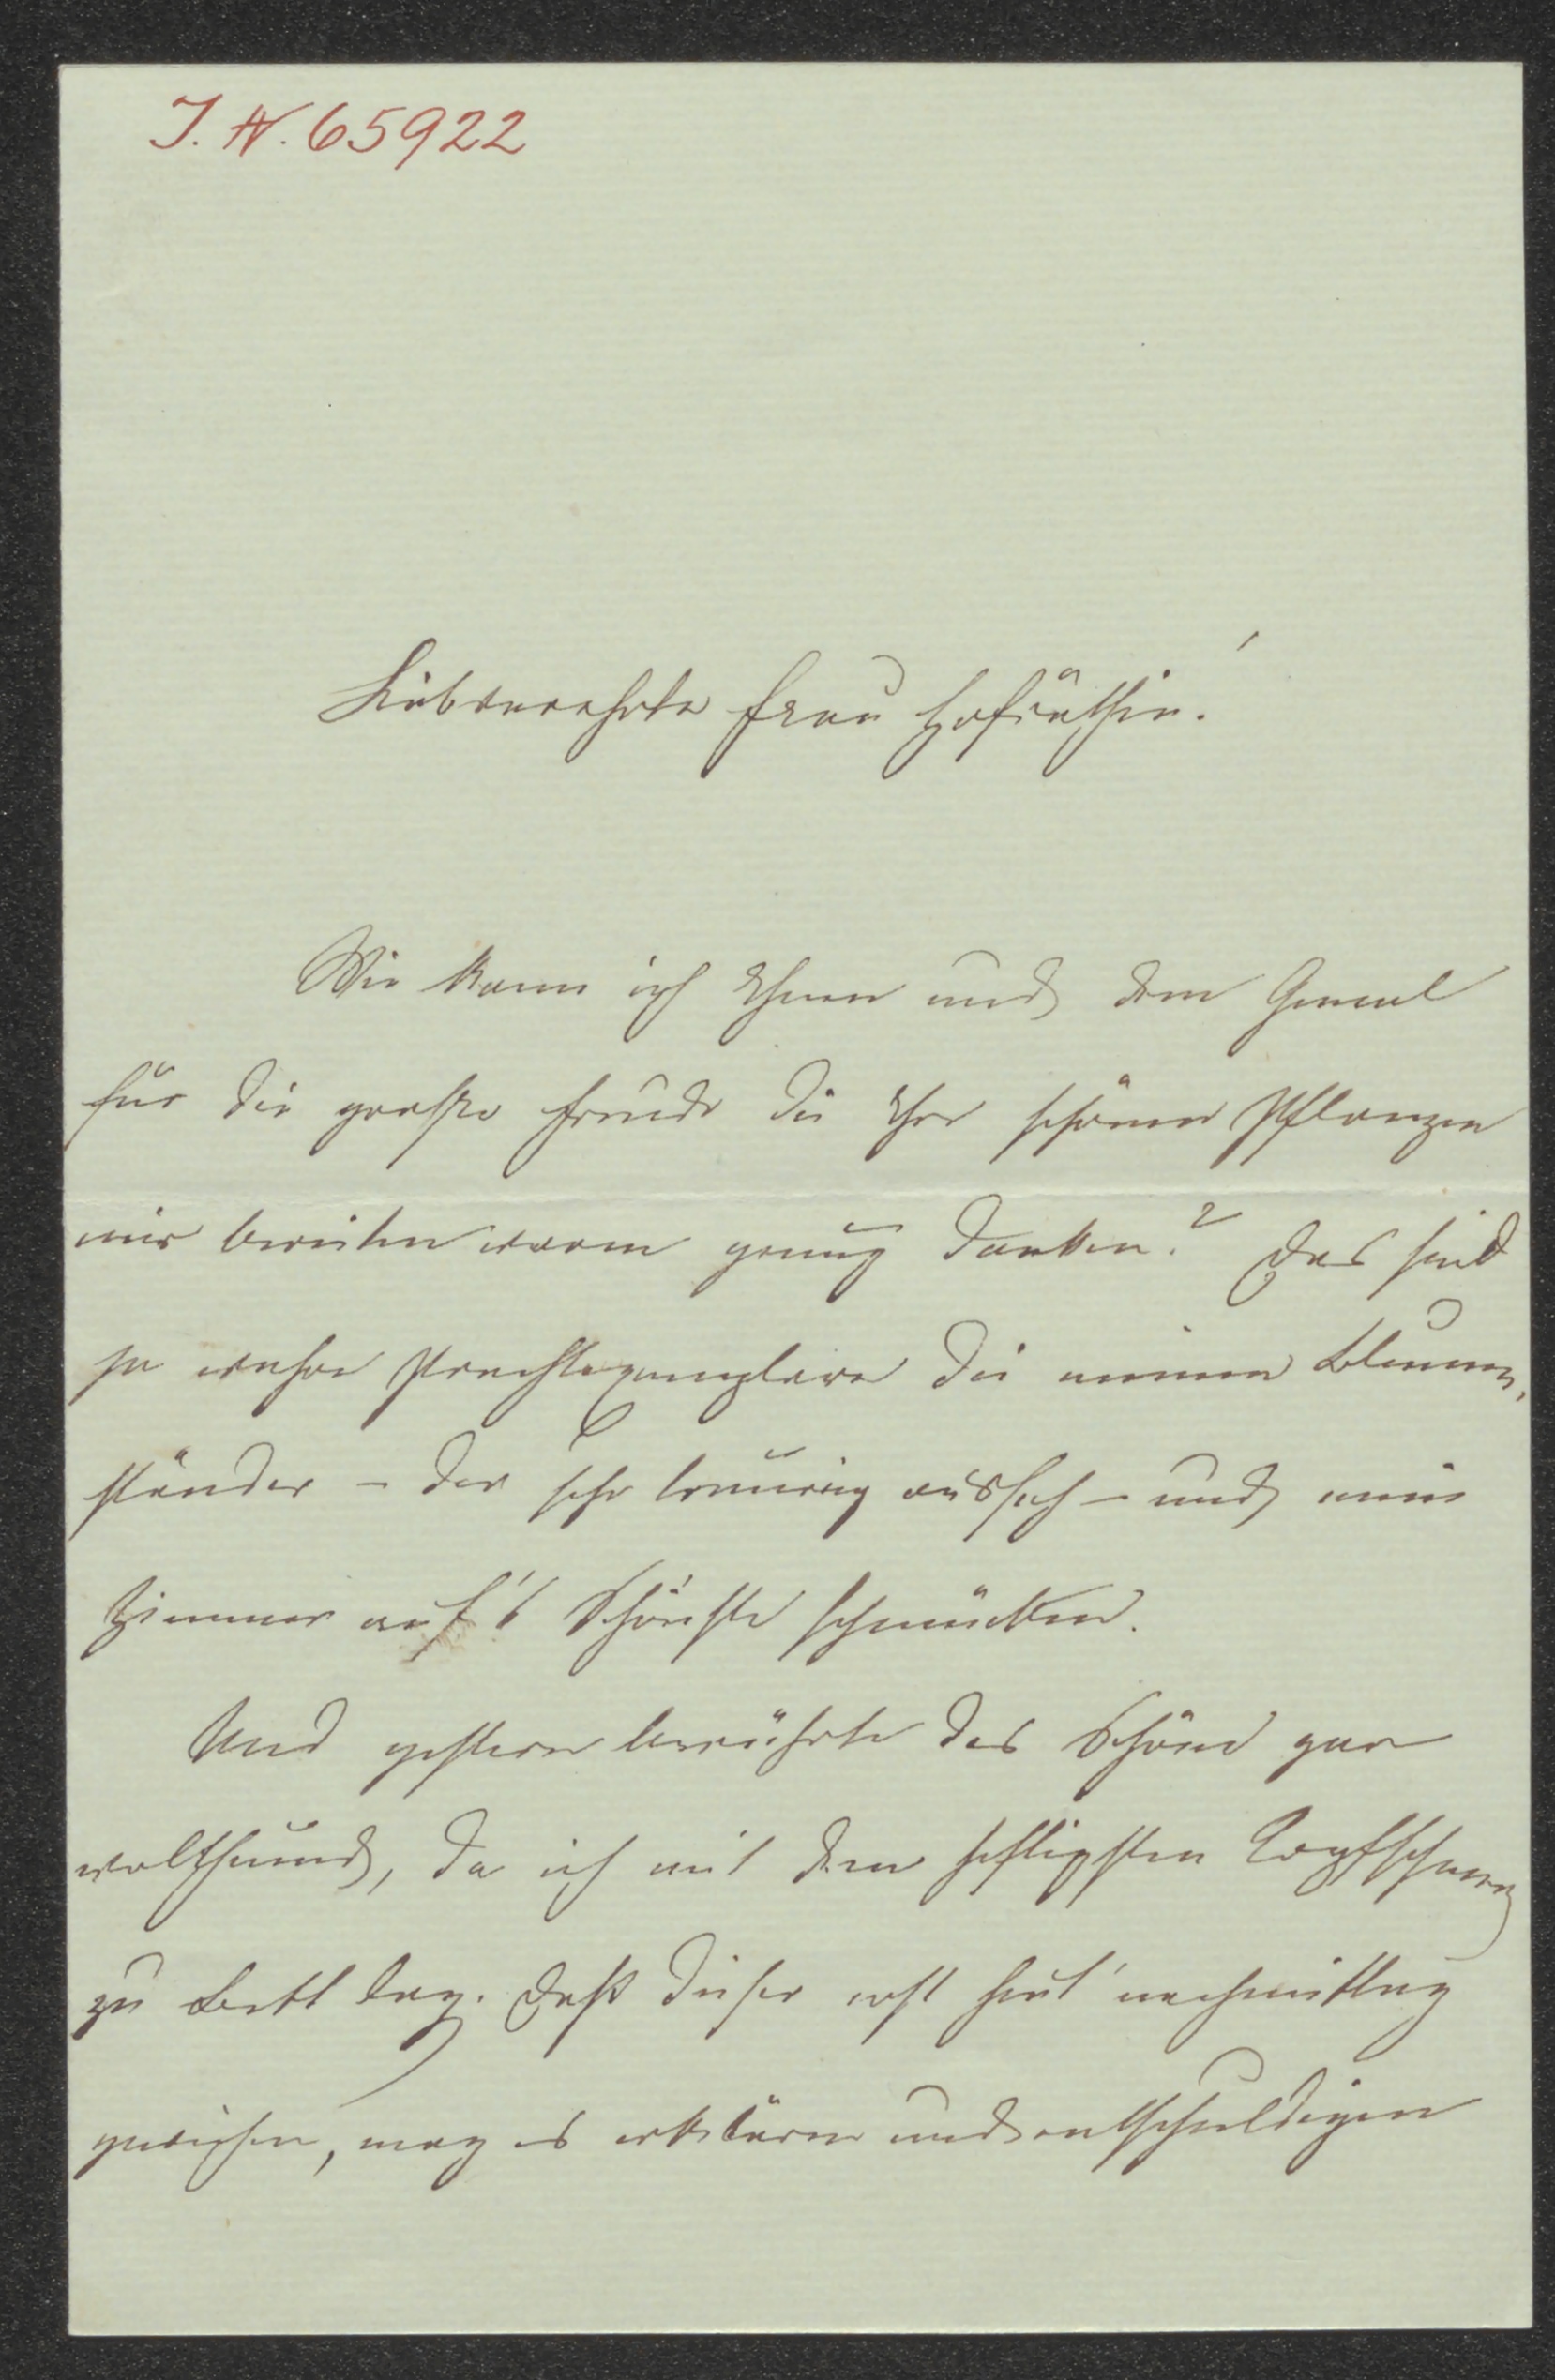 J. N. 65922
Liebverehrte Frau Hofräthin!
Wie kann ich Ihnen und dem Gemal
für die große Freude die Ihre schönen Pflanzen
mir bereiten warm genug danken? Das sind
ja wahre Prachtexemplare die meinen Blumen-
ständer – der sehr traurig aussah – und mein
Zimmer auf's Schönste schmücken.
Und gestern berührte das Schöne gar
wolthuend, da ich mit dem heftigsten Kopfschmerz
zu Bett lag. Daß dieser erst heut' nachmittag
gewichen, mag es erklären und entschuldigen